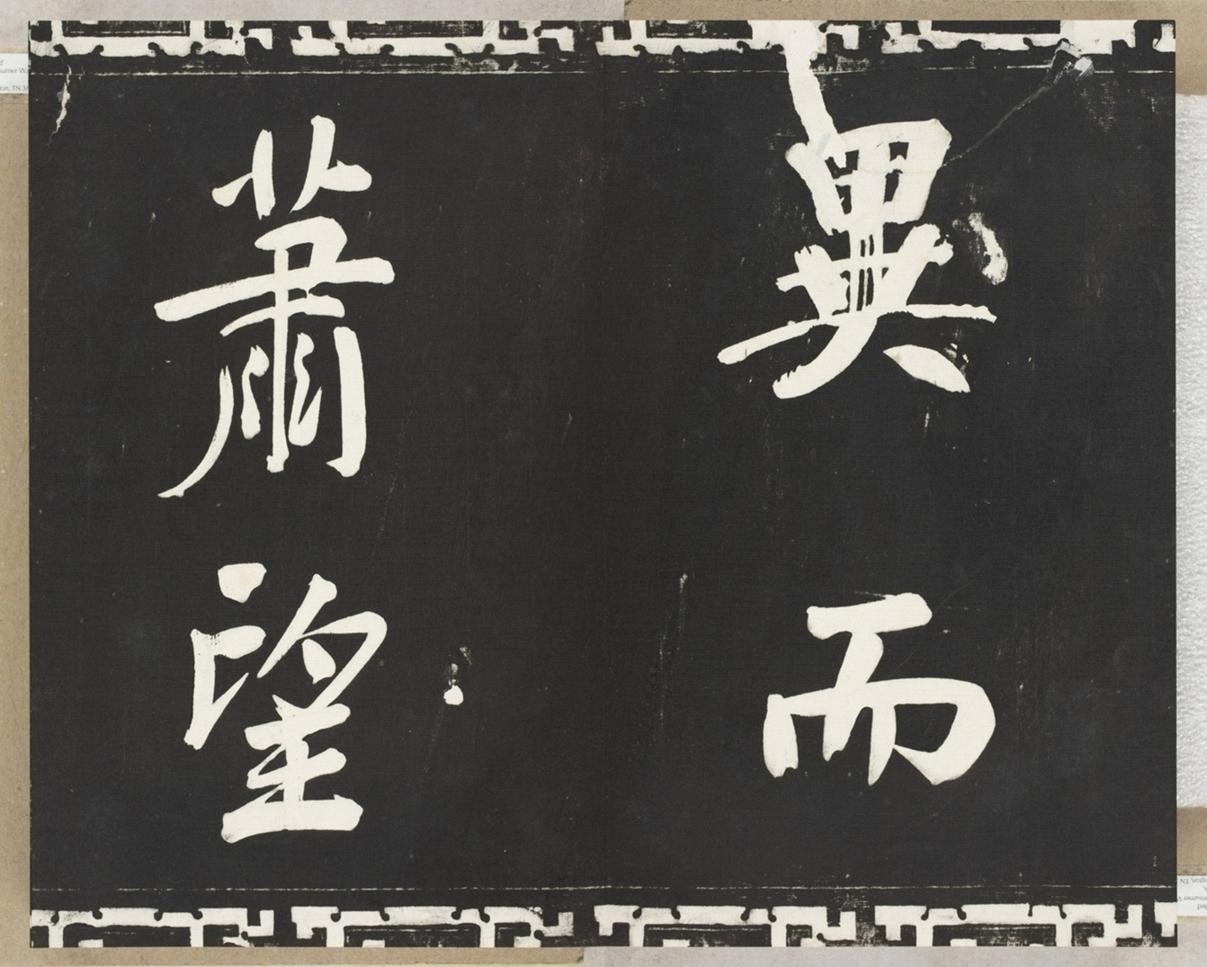 異而
蕭望